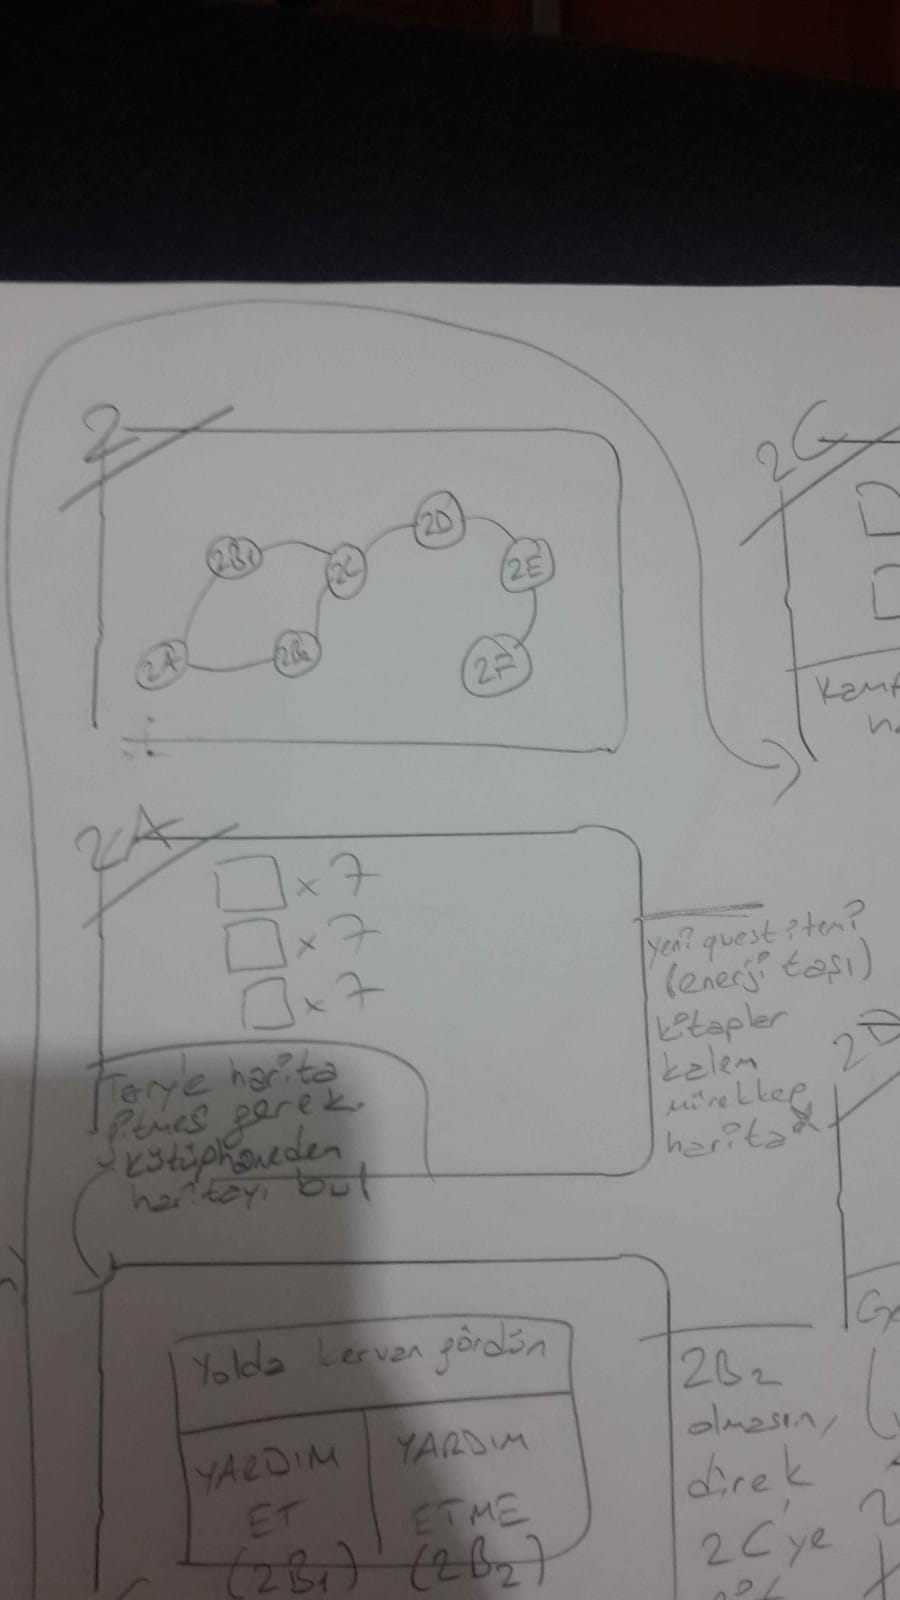 2
2B1
2C
2D
2E
2A
2B2
2F
2A
□ x 7
□ x 7
□ x 7
harita
gerek.
kütüphaneden
haritayı bul
yeni quest item?
(enerji taşı)
kitaplar
kalem
mürekkep
harita
Yolda kervan gördün
YARDIM
ET
(2B1)
YARDIM
ETME
(2B2)
2B2
olmasın,
direk
2C'ye
2C
2D